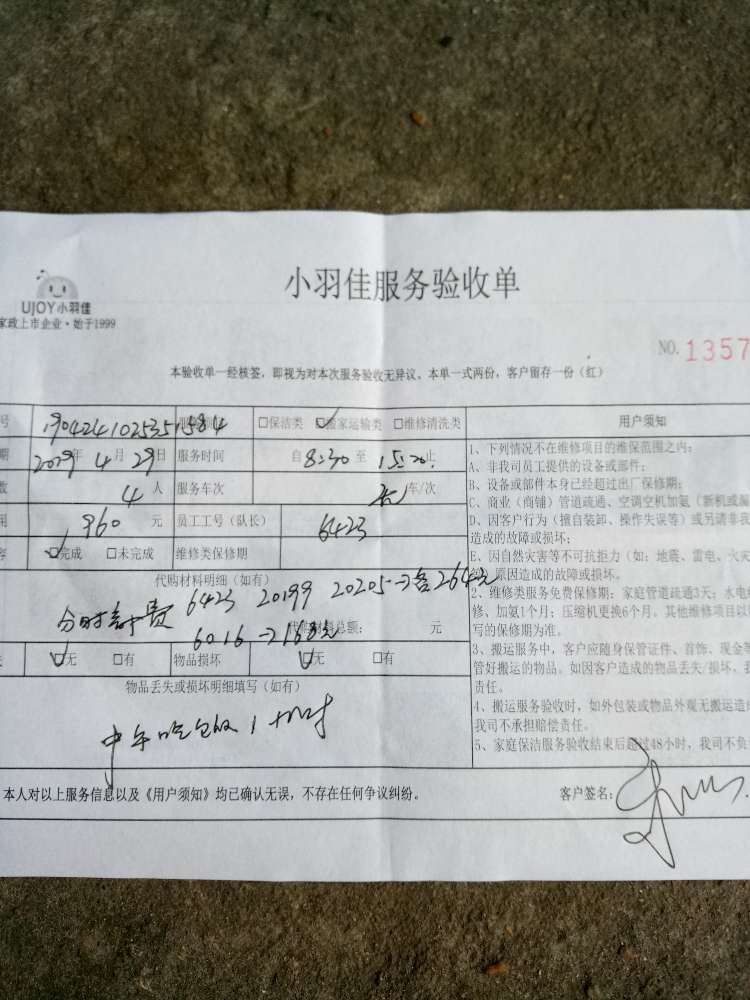 UJOY小羽佳
家政上市企业·始于1999
小羽佳服务验收单
NO. 1357
本验收单一经核签，即视为对本次服务验收无异议。本单一式两份，客户留存一份（红）
号 1904241025351584 □保洁类 □搬家运输类 □维修清洗类
期 2019年 4月 29日 服务时间 自 8:30 至 15:20 止
数 4 人 服务车次 车/次
用 960 元 员工工号（队长） 6423
容 □完成 □未完成 维修类保修期
代购材料明细（如有）
6423 20199 20205→各264元
分时 费 代购材料总额： 元
6016→168元
失 □无 □有 物品损坏 □无 □有
物品丢失或损坏明细填写（如有）
中午吃饭1小时
本人对以上服务信息以及《用户须知》均已确认无误，不存在任何争议纠纷。
用户须知
1、下列情况不在维修项目的维保范围之内：
A、非我司员工提供的设备或部件；
B、设备或部件本身已经超过出厂保修期；
C、商业（商铺）管道疏通、空调空机加氨（新机或漏
D、因客户行为（擅自装卸、操作失误等）或另请非我
造成的故障或损坏；
E、因自然灾害等不可抗拒力（如：地震、雷电、火灾
原因造成的故障或损坏。
2、维修类服务免费保修期：家庭管道疏通3天；水电维
修、加氨1个月；压缩机更换6个月。其他维修项目以
写的保修期为准。
3、搬运服务中，客户应随身保管证件、首饰、现金等
管好搬运的物品。如因客户造成的物品丢失/损坏、我
责任。
4、搬运服务验收时，如外包装或物品外观无搬运造成
我司不承担赔偿责任。
5、家庭保洁服务验收结束后超过48小时，我司不负
客户签名：